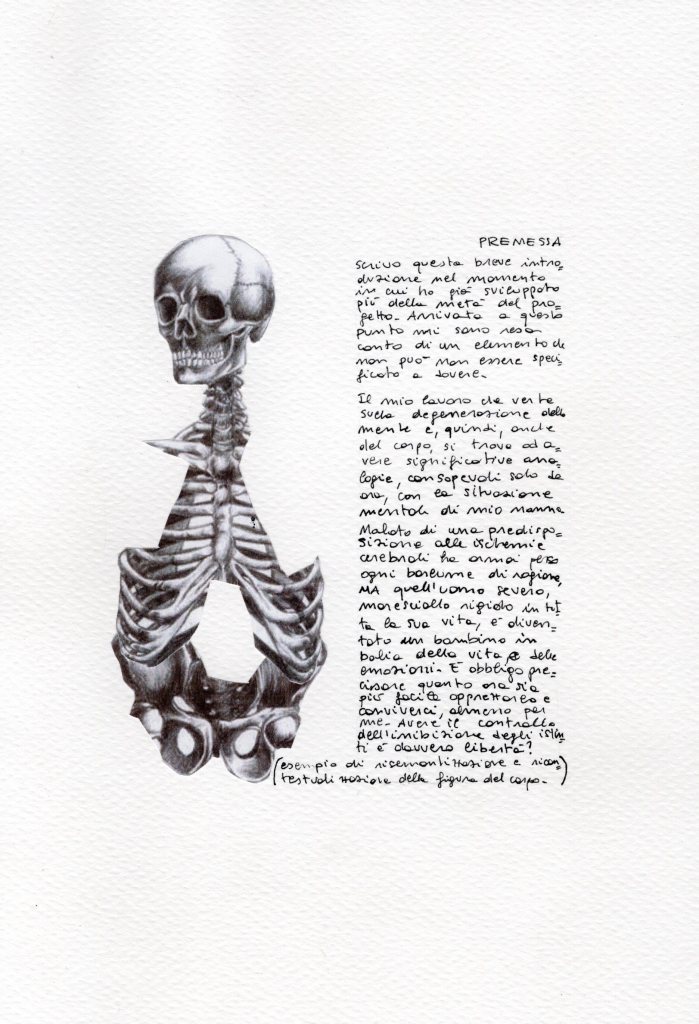 PREMESSA
scrivo questa breve intro-
duzione nel momento
in cui ho già sviluppato
più della metà del pro-
getto. Arrivata a questo
punto mi sono resa
conto di un elemento che
non può non essere speci-
ficato a dovere.
Il mio lavoro che verte
sulla degenerazione della
mente e, quindi, anche
del corpo, si trova ad a-
vere significative ana-
logie, consapevoli solo da
ora, con la situazione
mentale di mio nonno
Malato di una predispo-
sizione alle ischemie
cerebrali ha ormai perso
ogni barlume di ragione,
MA quell'uomo severo,
maresciallo rigido in tut-
ta la sua vita, è diven-
tato un bambino in
balia della vita e delle
emozioni. È obbligo pre-
cisare quanto ora sia
più facile apprezzarlo e
conviverci, almeno per
me. Avere il controllo
dell'inibizione degli istin-
ti è davvero libertà?
(esempio di risemantizzazione e ricon-
testualizzazione della figura del corpo.)